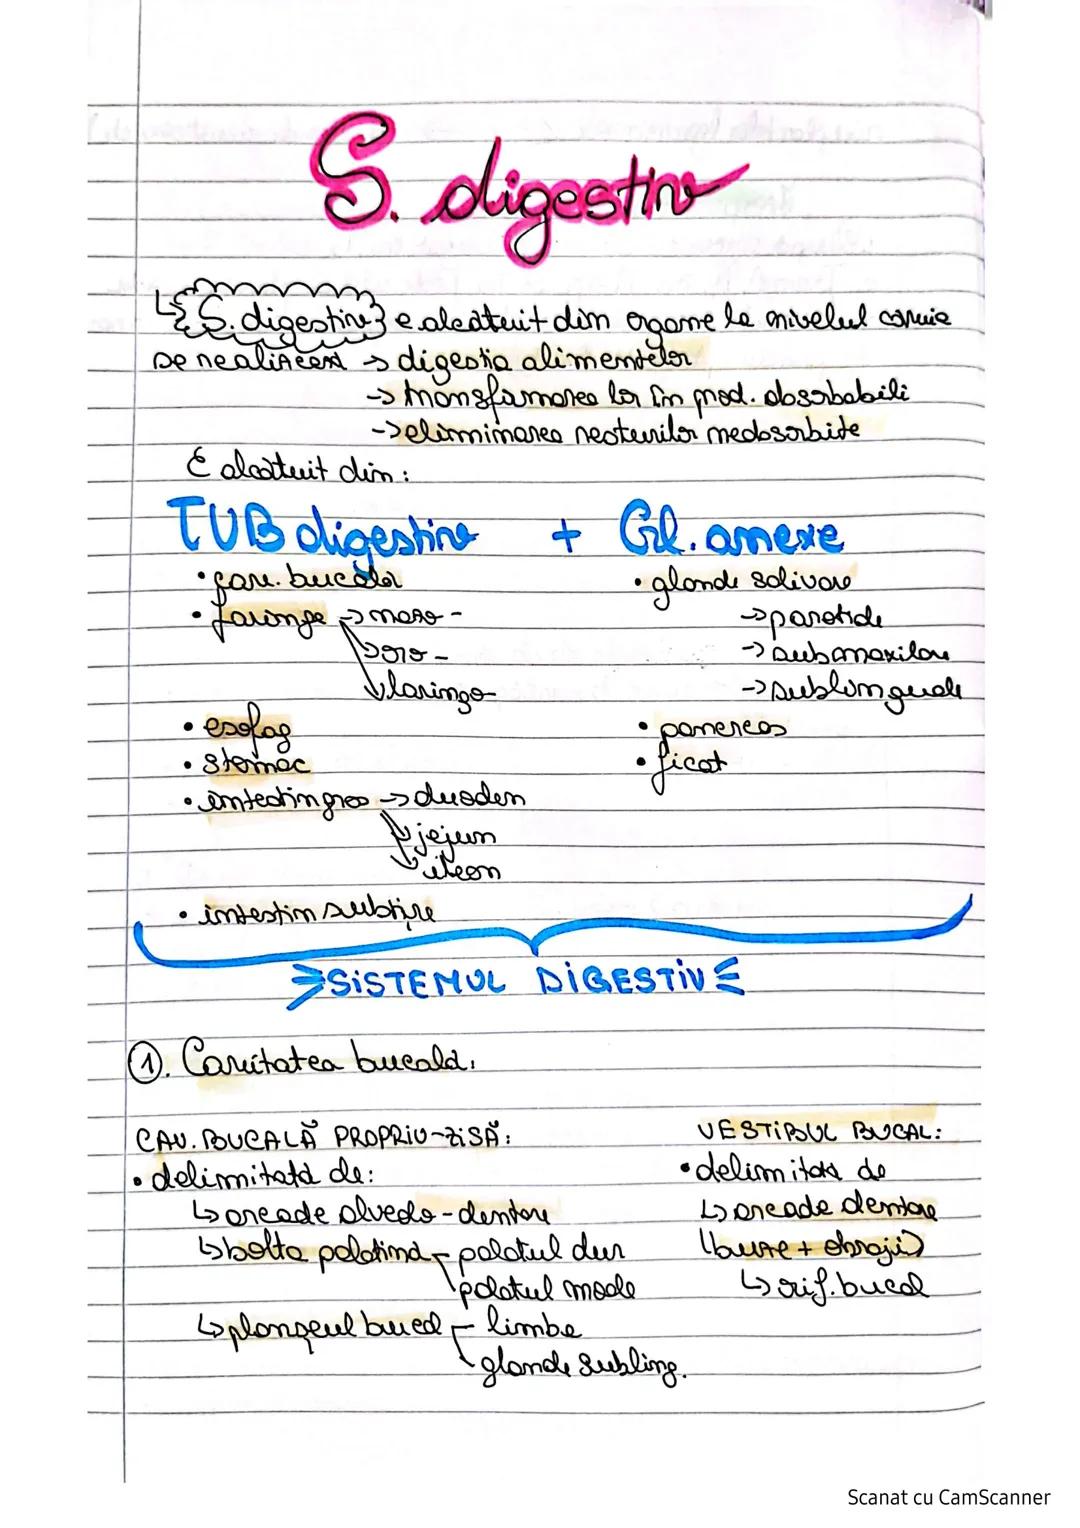 S. digestiv
↳ S. digestiv e alcătuit din organe la nivelul cărora
se realizează → digestia alimentelor
→ transformarea lor în prod. absorbabili
→ eliminarea resturilor neabsorbite
E alcătuit din:
TUB digestiv + Gl. anexe
• cav. bucală • glande salivare
• faringe → nazo - → parotide
↘ oro - → submaxilare
↘ laringo- → sublinguale
• esofag • pancreas
• stomac • ficat
• intestin gros → duoden
↘ jejun
↘ ileon
• intestin subțire
SISTEMUL DIGESTIV
①. Cavitatea bucală.
CAV. BUCALĂ PROPRIU-ZISĂ: VESTIBUL BUCAL:
• delimitată de: • delimitat de
↳ arcade alveolo-dentare ↳ arcade dentare
↳ bolta palatină - palatul dur (buze + obraji)
palatul moale ↳ orif. bucal
↳ planșeul bucal - limba
glande subling.
Scanat cu CamScanner